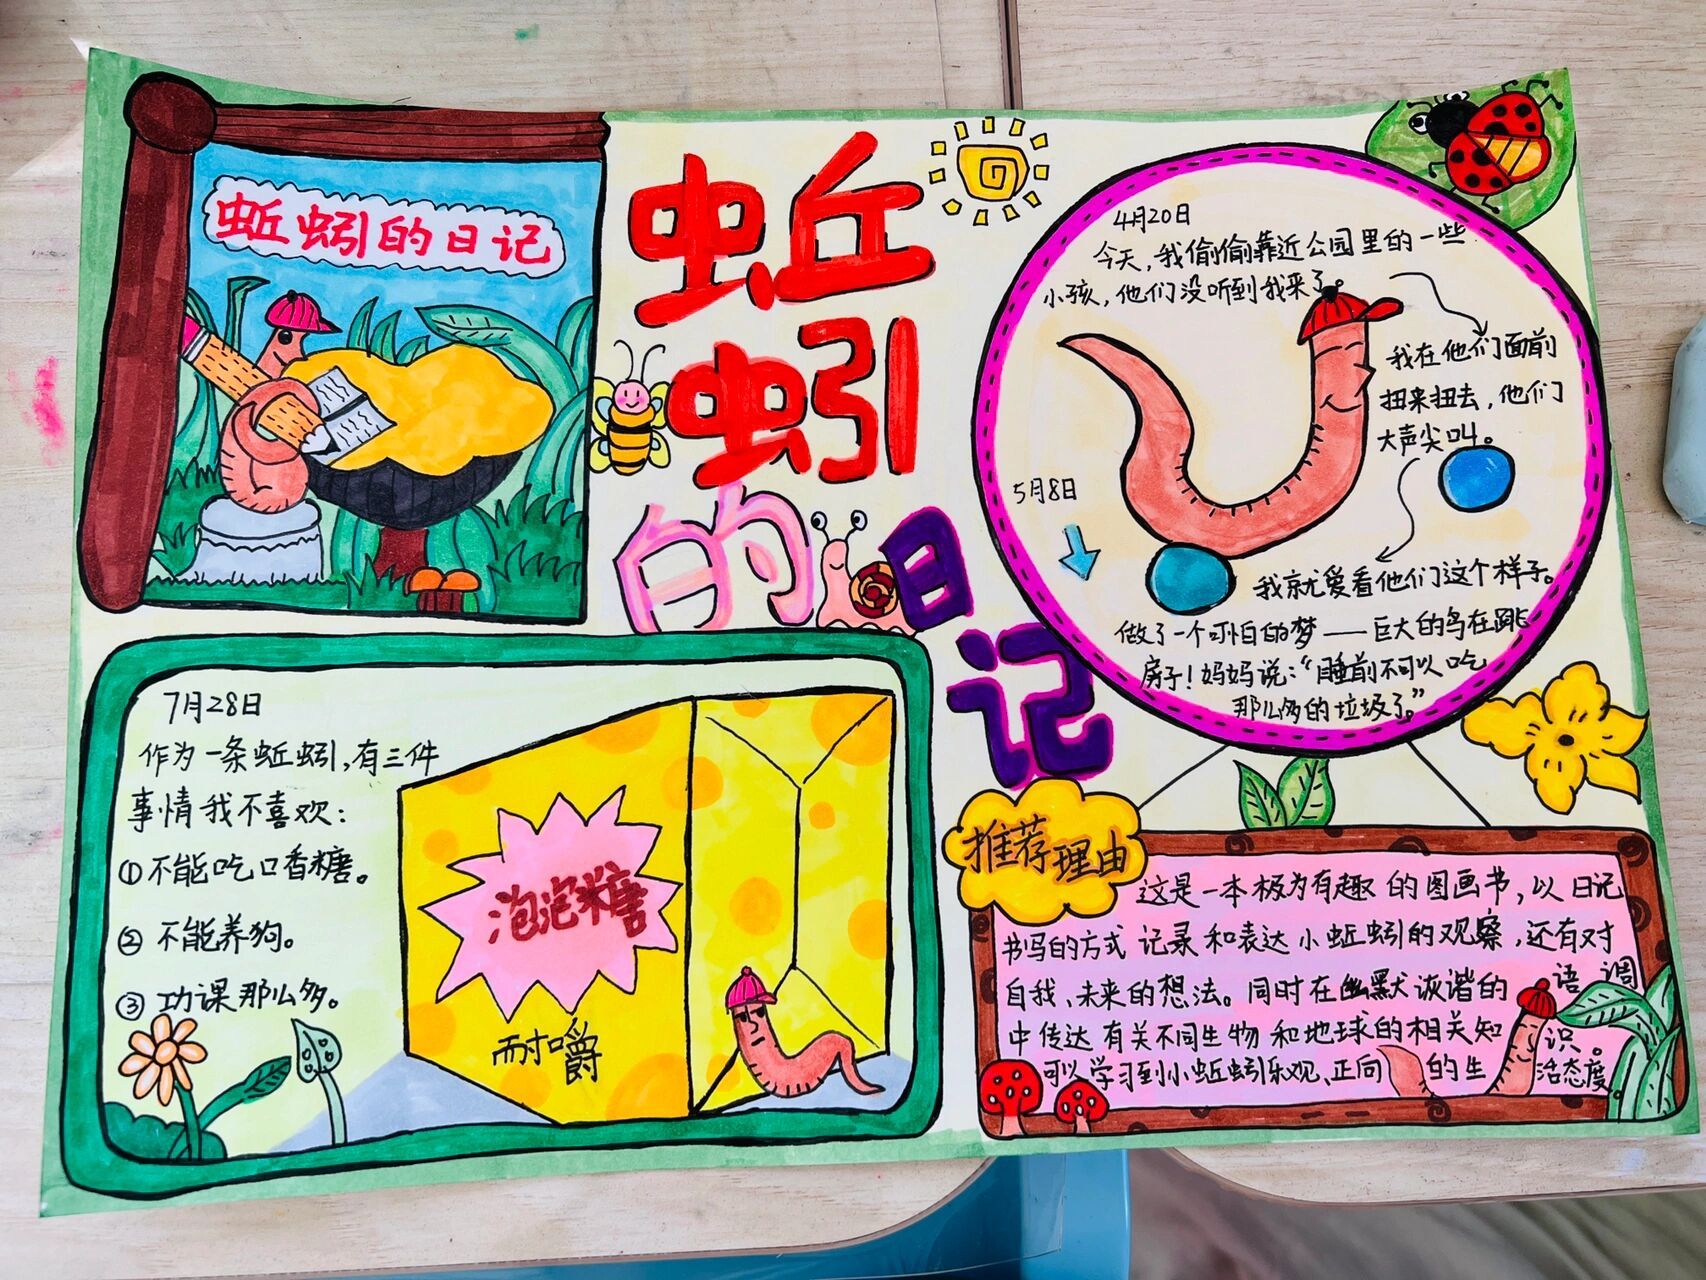 蚯蚓的日记
蚯
蚓
的
日
记
4月20日
今天,我偷偷靠近公园里的一些
小孩,他们没听到我来了。
我在他们面前
扭来扭去,他们
大声尖叫。
我就爱看他们这个样子。
5月8日
做了一个可怕的梦——巨大的鸟在跳
房子!妈妈说:“睡前不可以吃
那么多的垃圾了。”
7月28日
作为一条蚯蚓,有三件
事情我不喜欢:
①不能吃口香糖。
② 不能养狗。
③ 功课那么多。
泡泡糖
耐嚼
推荐理由
这是一本极为有趣的图画书,以日记
书写的方式记录和表达小蚯蚓的观察,还有对
自我、未来的想法。同时在幽默诙谐的语调
中传达有关不同生物和地球的相关知识。
可以学习到小蚯蚓乐观、正向的生活态度。